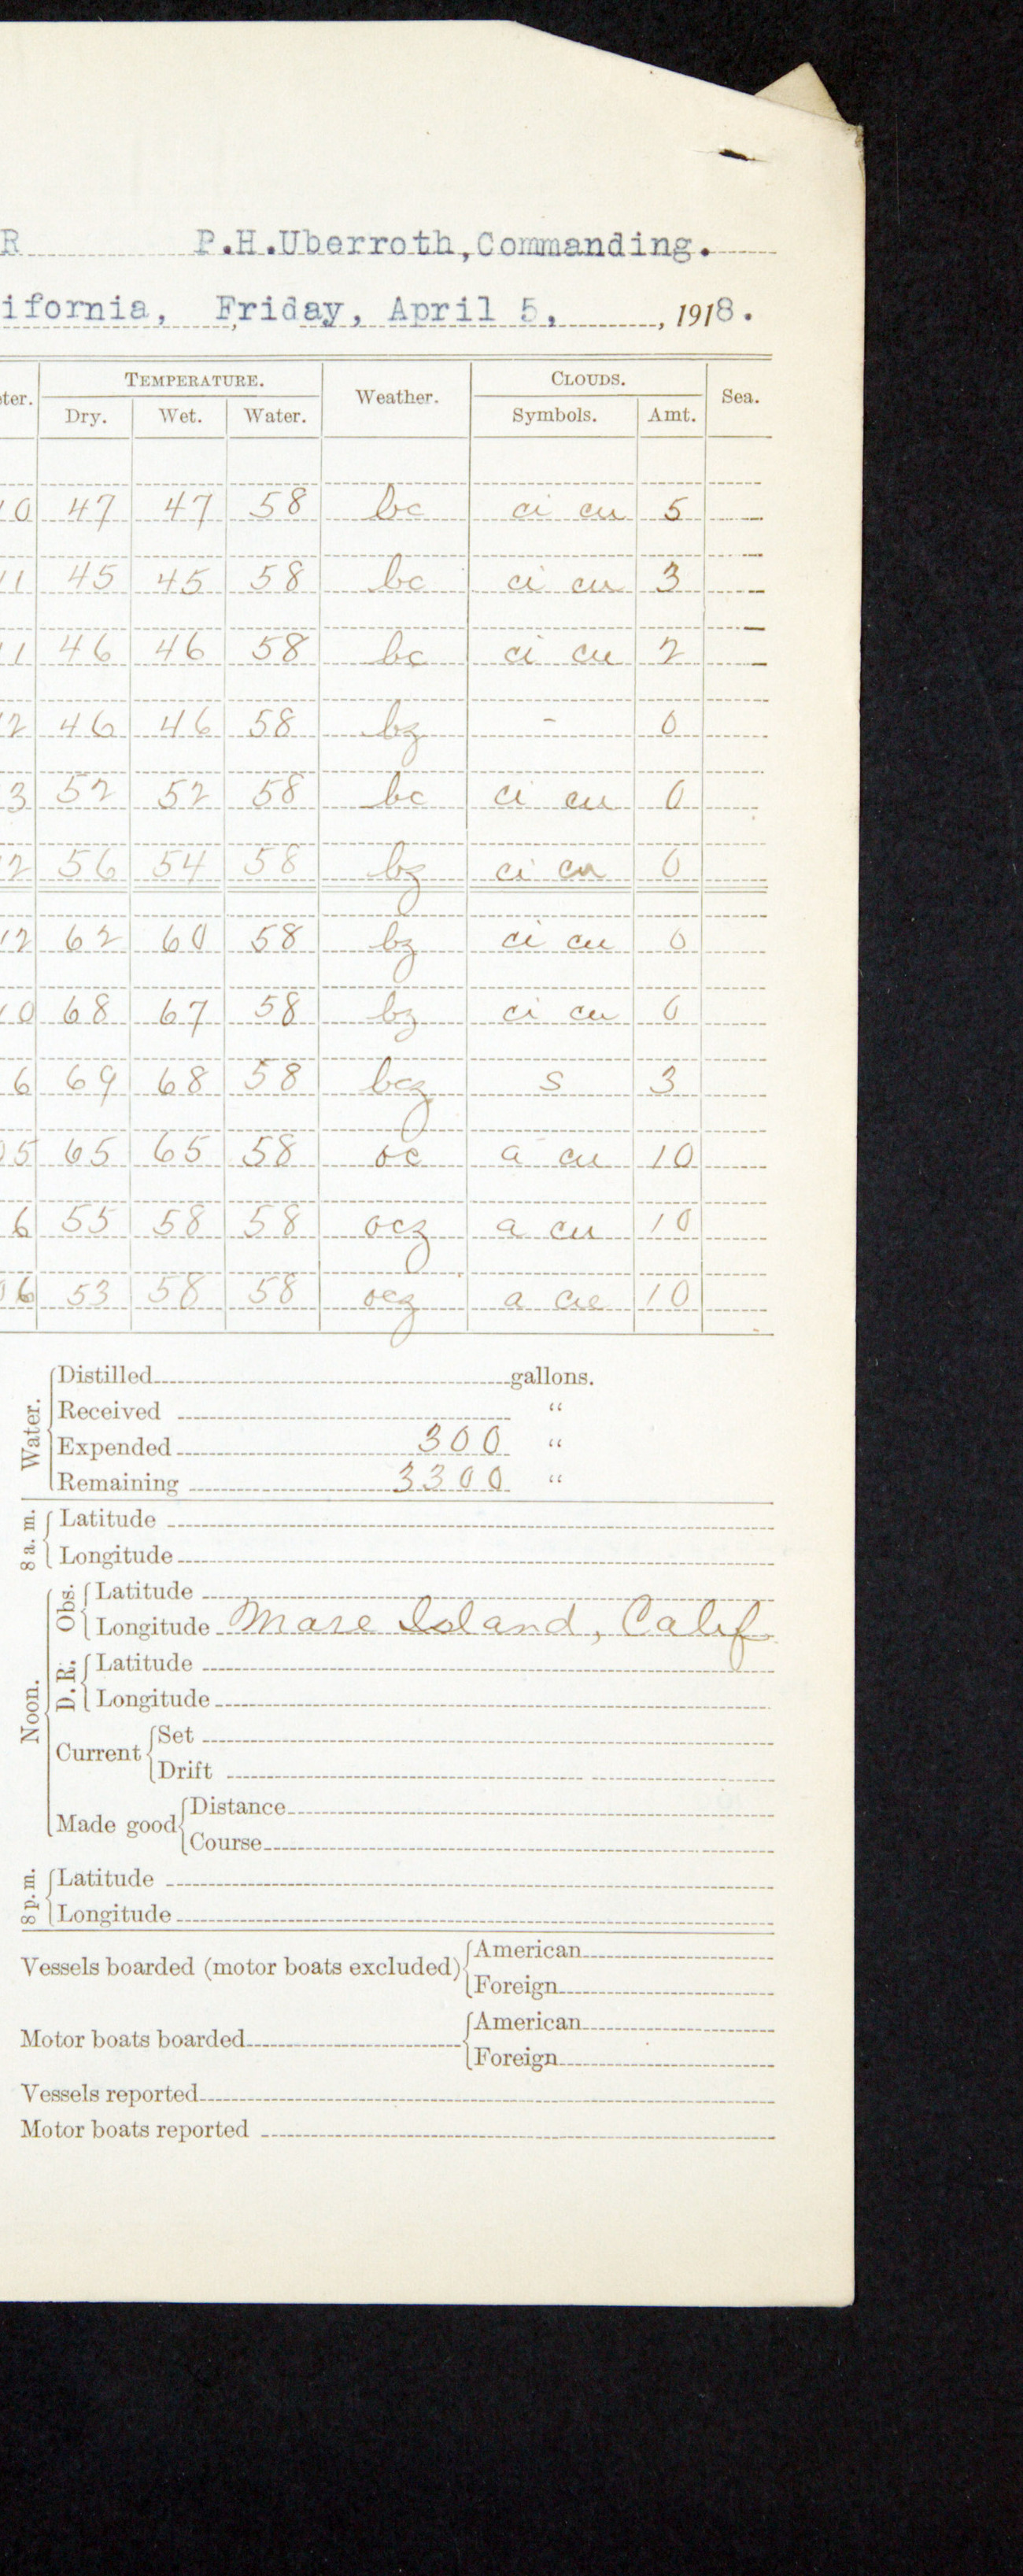 R P.H.Uberroth,Commanding.
ifornia, Friday, April 5, , 1918.
ter. TEMPERATURE. Weather. CLOUDS. Sea.
Dry. Wet. Water. Symbols. Amt.
10 47 47 58 bc ci cu 5
11 45 45 58 bc ci cu 3
11 46 46 58 bc ci cu 2
12 46 46 58 bz - 0
3 52 52 58 bc ci cu 0
12 56 54 58 bz ci cu 0
12 62 60 58 bz ci cu 0
10 68 67 58 bz ci cu 0
6 69 68 58 bcz s 3
05 65 65 58 oc a cu 10
6 55 58 58 ocz a cu 10
06 53 58 58 ocz a cu 10
Water.
Distilled gallons.
Received "
Expended 300 "
Remaining 3300 "
8 a. m.
Latitude
Longitude
Noon.
Obs.
Latitude
Longitude Mare Island, Calif
D. R.
Latitude
Longitude
Current
Set
Drift
Made good
Distance
Course
8 p. m.
Latitude
Longitude
Vessels boarded (motor boats excluded)
American
Foreign
Motor boats boarded
American
Foreign
Vessels reported
Motor boats reported